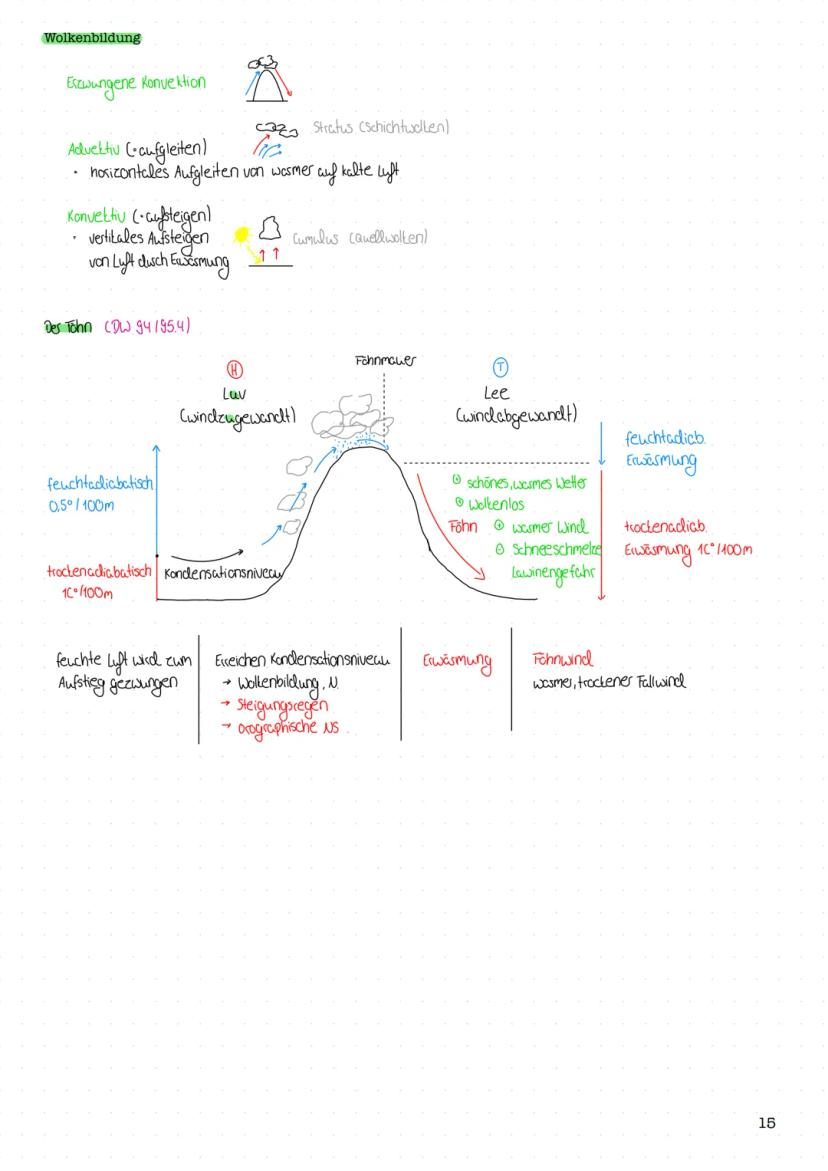 Wolkenbildung
Erzwungene Konvektion
Stratus (Schichtwolken)
Advektiv (·aufgleiten)
· horizontales Aufgleiten von warmer auf kalte Luft
Konvektiv (·aufsteigen)
· vertikales Aufsteigen
von Luft durch Erwärmung
Cumulus (Quellwolken)
Der Föhn (DW 94/95.4)
Föhnmauer
H
Luv
(windzugewandt)
T
Lee
(windabgewandt)
feuchtadiab.
Erwärmung
feuchtadiabatisch
0,5°/100m
schönes, warmes Wetter
Wolkenlos
Föhn
warmer Wind
Schneeschmelze
Lawinengefahr
trockenadiab.
Erwärmung 1C°/100m
trockenadiabatisch
1C°/100m
Kondensationsniveau
feuchte Luft wird zum
Aufstieg gezwungen
Erreichen Kondensationsniveau
→ Wolkenbildung, N.
→ Steigungsregen
→ orographische NS
Erwärmung
Föhnwind
warmer, trockener Fallwind
15